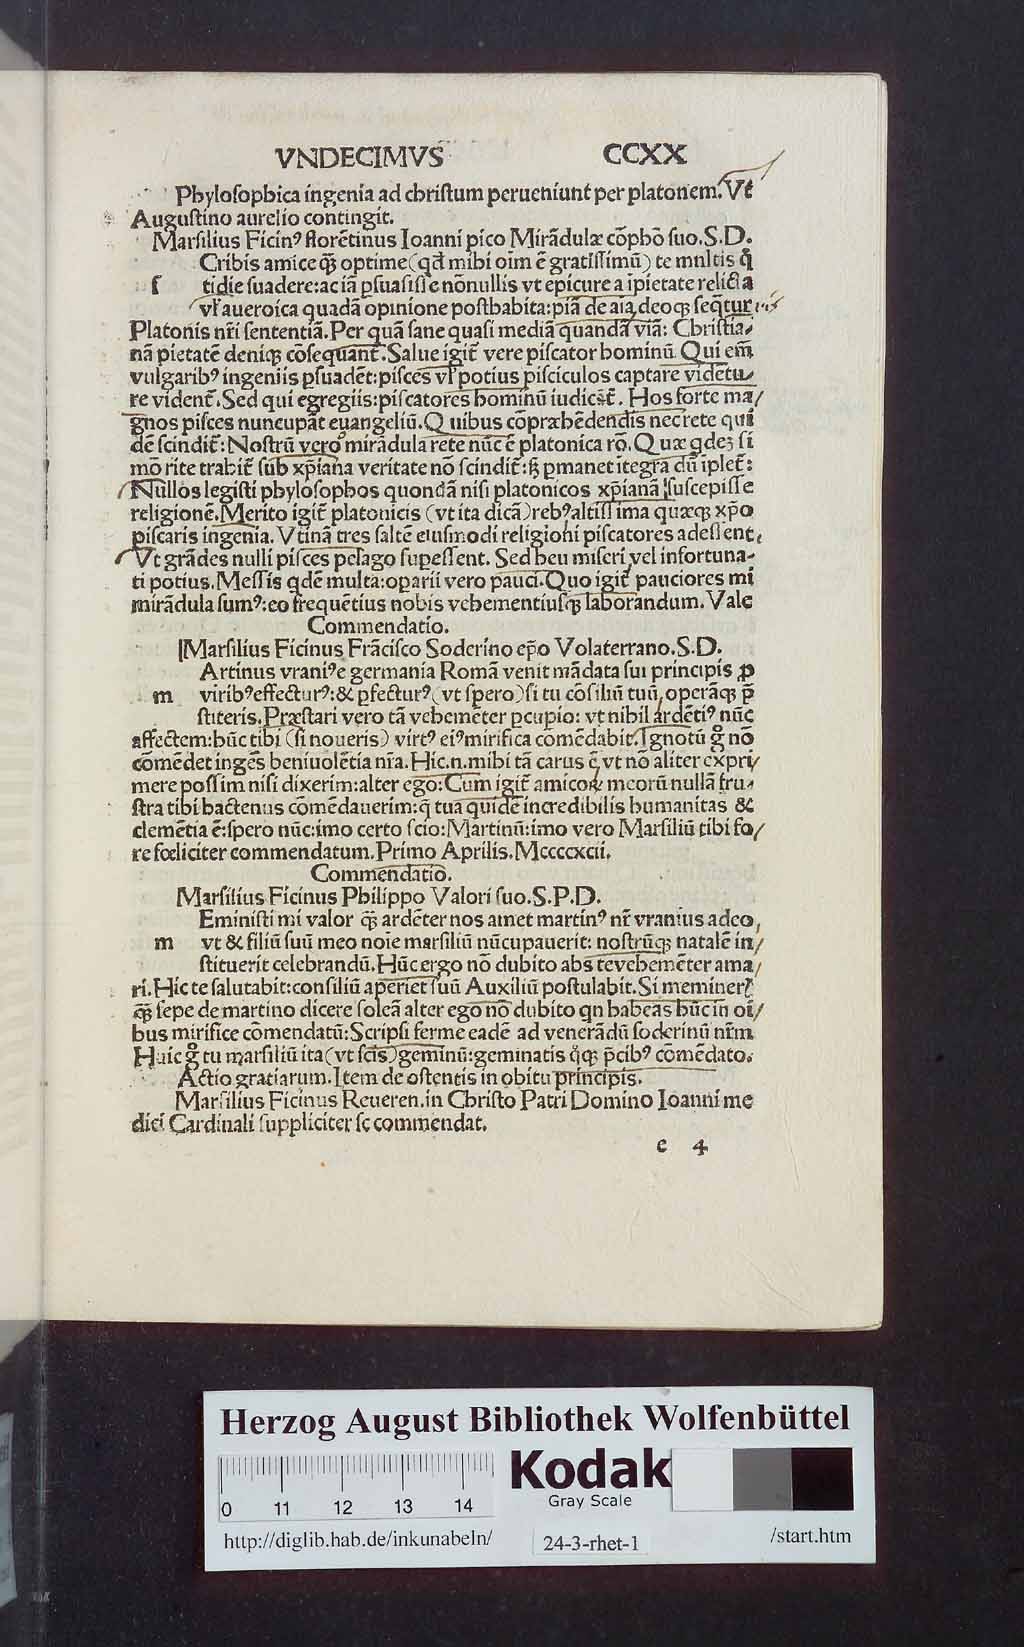 VNDECIMVS CCXX
Phylosophica ingenia ad christum perueniunt per platonem. Vt
Augustino aurelio contingit.
Marsilius Ficinꝰ florẽtinus Ioanni pico Mirãdulæ cõphõ suo. S. D.
Cribis amice q̃ꝫ optime (qđ mihi oim̃ ẽ gratissimũ) te multis q̃
s tidie suadere: ac iã ꝑsuasisse nõnullis vt epicure a ipietate relicta
vl̃ aueroica quadã opinione posthabita: piã de aia, deoqꝫ seq̃tur
Platonis nr̃i sententiã. Per quã sane quasi mediã quandã viã: Christia-
nã pietatẽ deniqꝫ cõsequant̃. Salue igit̃ vere piscator hominũ. Qui em̃
vulgaribꝰ ingeniis ꝑsuadẽt: pisces vl̃ potius pisciculos captare vidẽtu-
re vident̃. Sed qui egregiis: piscatores hominũ iudicãt̃. Hos forte ma/
gnos pisces nuncupãt euangeliũ. Quibus cõpræhẽdendis nec rete qui
dẽ scindit̃: Nostrũ vero mirãdula rete nũc ẽ platonica rõ. Quæ qdeꝫ si
mõ rite trahit̃ sub xp̃iana veritate nõ scindit̃: sꝫ ꝑmanet itegra dũ iplet̃:
Nullos legisti phylosophos quondã nisi platonicos xp̃ianã suscepisse
religionẽ. Merito igit̃ platonicis (vt ita dicã) rebꝰ altissima quæqꝫ xp̃o
piscaris ingenia. Vtinã tres saltẽ eiusmodi religioni piscatores adessent,
Vt grãdes nulli pisces pelago supessent. Sed heu miseri, vel infortuna-
ti potius. Messis qdẽ multa: oparii vero pauci. Quo igit̃ pauciores mi
mirãdula sumꝰ: eo frequẽtius nobis vehementiusqꝫ laborandum. Vale
Commendatio.
Marsilius Ficinus Frãcisco Soderino ep̃o Volaterrano. S. D.
Artinus vraniꝰ e germania Romã venit mãdata sui principis ꝓ
m viribꝰ effecturꝰ: & ꝑfecturꝰ (vt spero) si tu cõsiliũ tuũ, operãqꝫ p̃
stiteris. Præstari vero tã vehemẽter ꝑcupio: vt nihil ardẽtiꝰ nũc
affectem: hũc tibi (si noueris) virtꝰ eiꝰ mirifica cõmẽdabit. Ignotũ g̊ nõ
cõmẽdet ingẽs beniuolẽtia nr̃a. Hic .n. mihi tã carus ẽ, vt nõ aliter expri/
mere possim nisi dixerim: alter ego: Cum igit̃ amicoꝝ meorũ nullã fru-
stra tibi hactenus cõmẽdauerim: q̃ tua quidẽ incredibilis humanitas &
clemẽtia ẽ: spero nũc: imo certo scio: Martinũ: imo vero Marsiliũ tibi fo/
re fœliciter commendatum. Primo Aprilis. Mccccxcii.
Commendatio.
Marsilius Ficinus Philippo Valori suo. S. P. D.
Eministi mi valor q̃ꝫ ardẽter nos amet martinꝰ nr̃ vranius adeo,
m vt & filiũ suũ meo noie marsiliũ nũcupauerit: nostrũqꝫ natalẽ in/
stituerit celebrandũ. Hũc ergo nõ dubito abs te vehemẽter ama/
ri. Hic te salutabit: consiliũ aperiet suũ Auxiliũ postulabit. Si meminer̃
q̃ꝫ sepe de martino dicere soleã alter ego nõ dubito qn habeas hũc in oĩ/
bus mirifice cõmendatũ: Scripsi ferme eadẽ ad venerãdũ soderinũ nr̃m
Huic g̊ tu marsiliũ ita (vt scis) geminũ: geminatis q̊qꝫ p̃cibꝰ cõmẽdato.
Actio gratiarum. Item de ostentis in obitu principis.
Marsilius Ficinus Reueren. in Christo Patri Domino Ioanni me
dici Cardinali suppliciter se commendat.
e 4
Herzog August Bibliothek Wolfenbüttel
0 11 12 13 14
Kodak
Gray Scale
http://diglib.hab.de/inkunabeln/
24-3-rhet-1
/start.htm